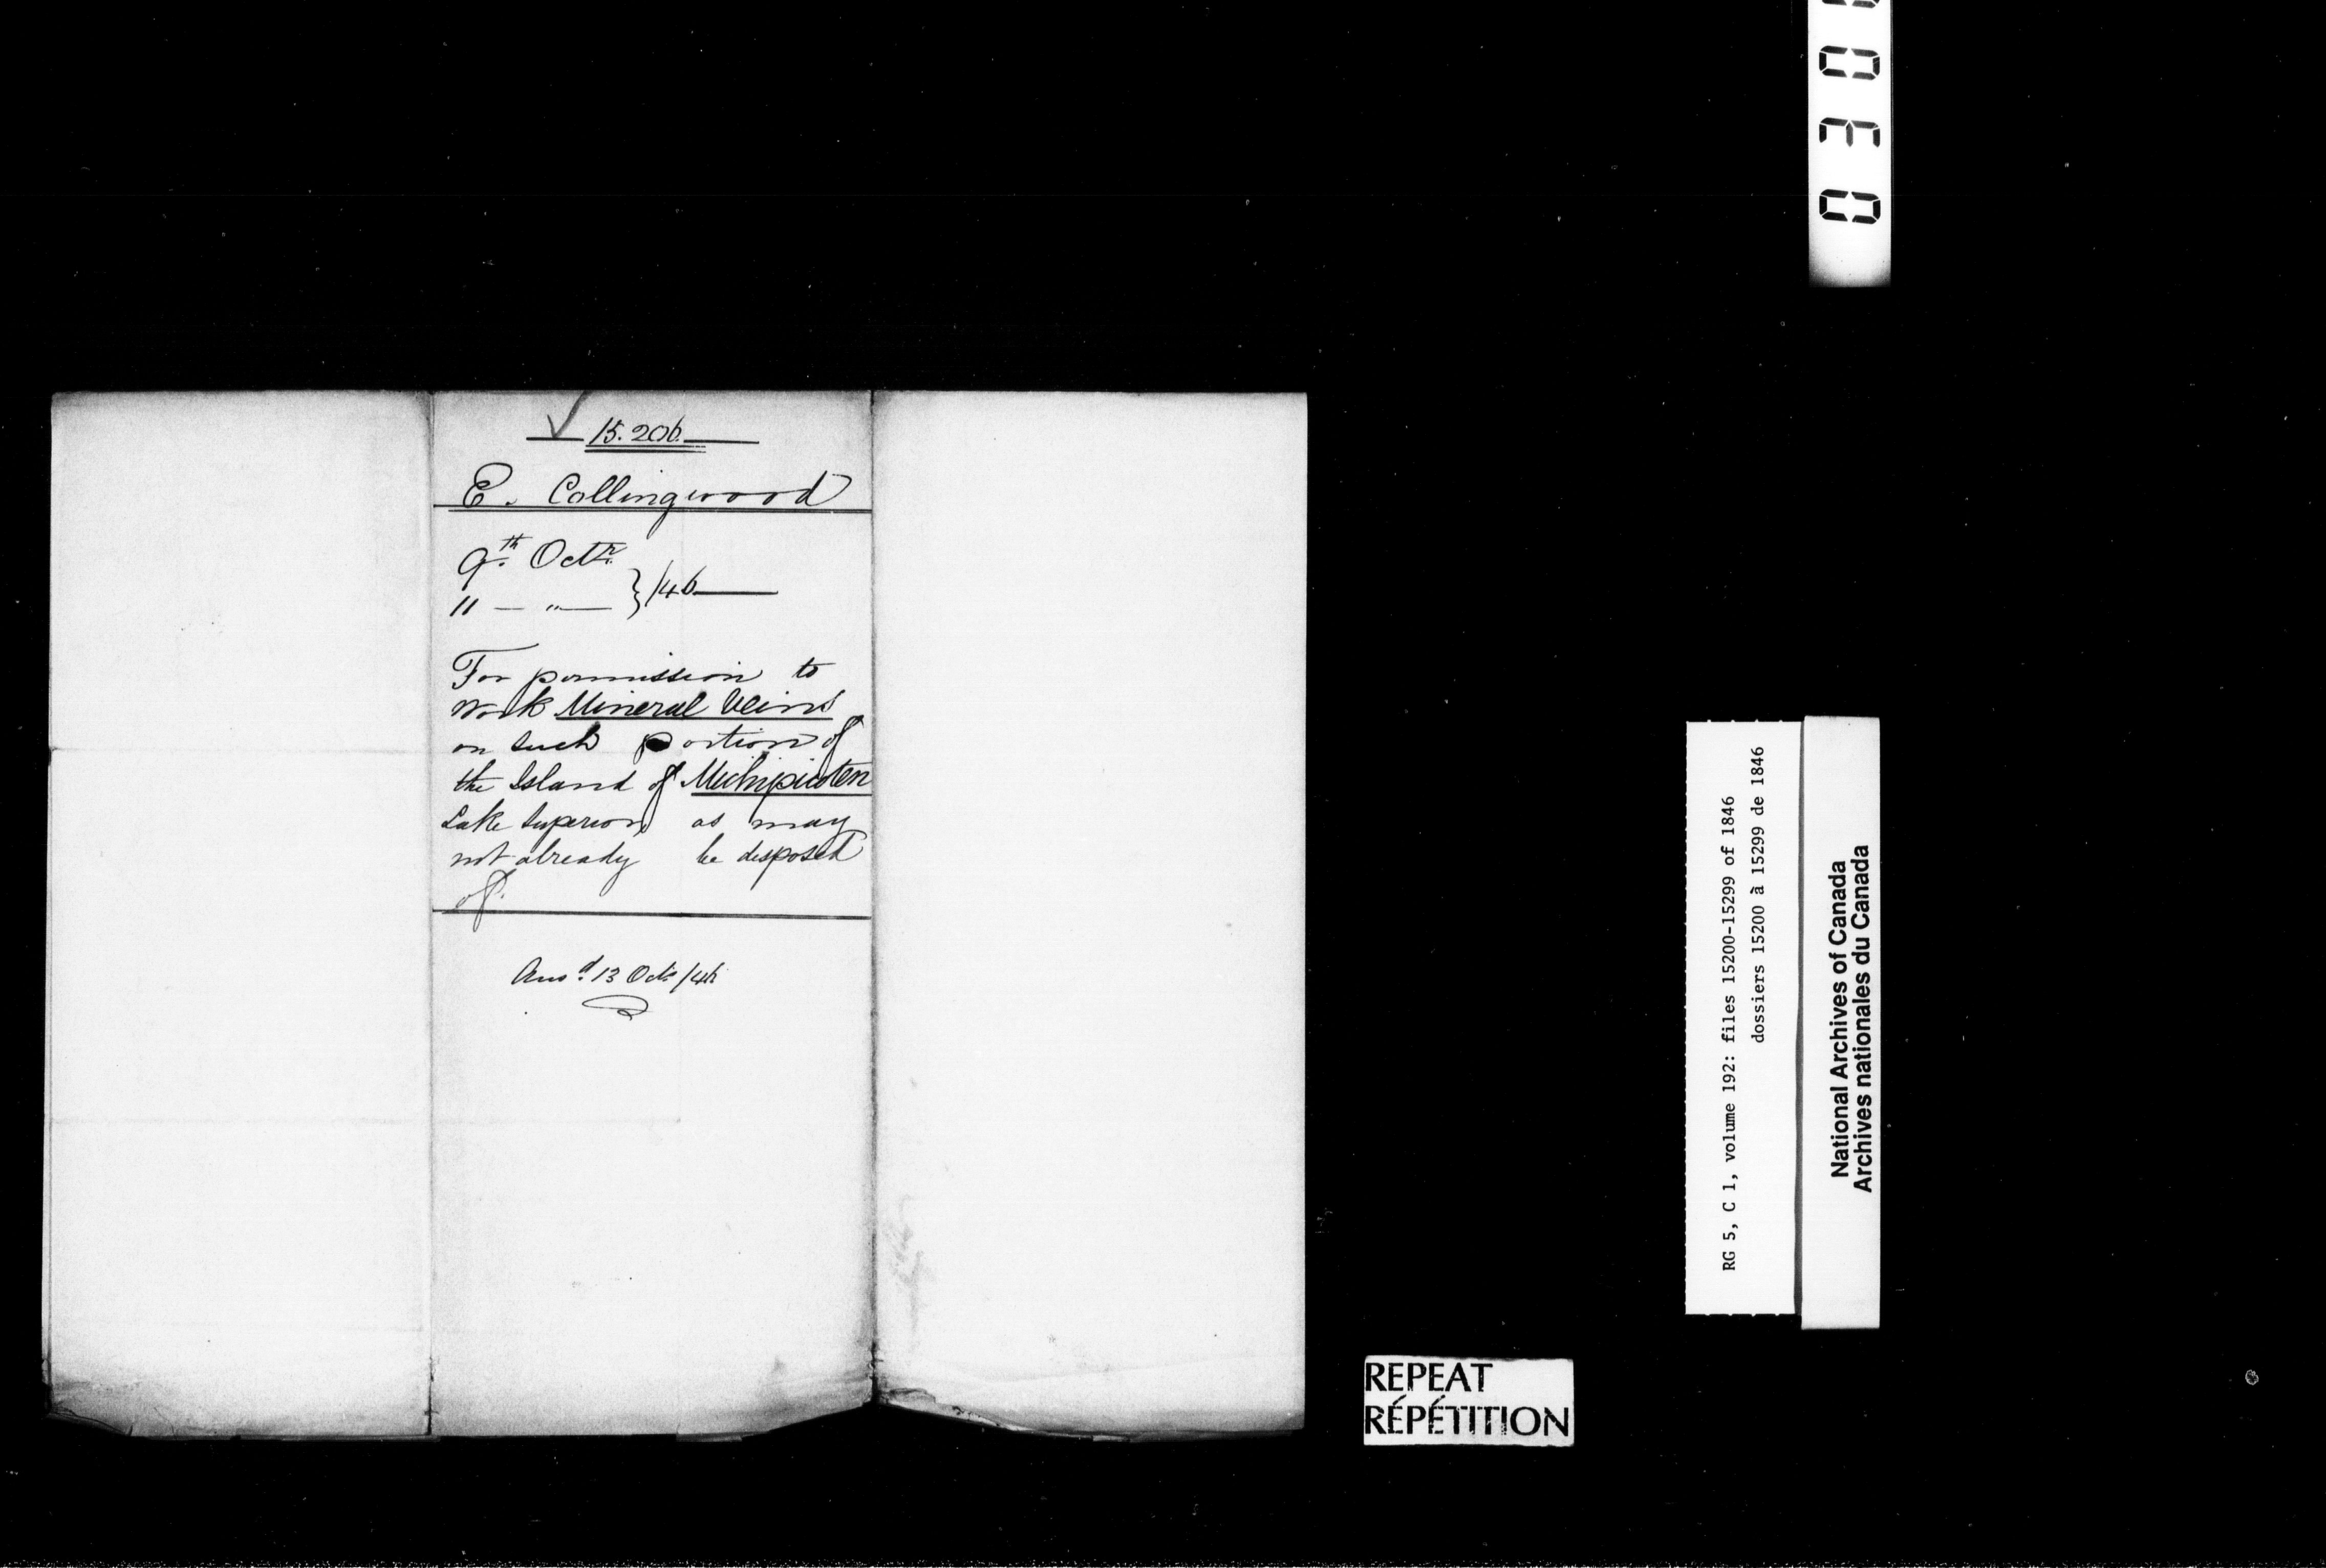 15.206.
E. Collingwood
9th Octr.
11 — " — } /46
For permission to
work Mineral Veins
on such portion of
the Island of Michipicoten
Lake Superior as may
not already be disposed
of.
Ansd. 13 Octr /46
RG 5, C 1, volume 192: files 15200-15299 of 1846
dossiers 15200 à 15299 de 1846
National Archives of Canada
Archives nationales du Canada
REPEAT
RÉPÉTITION